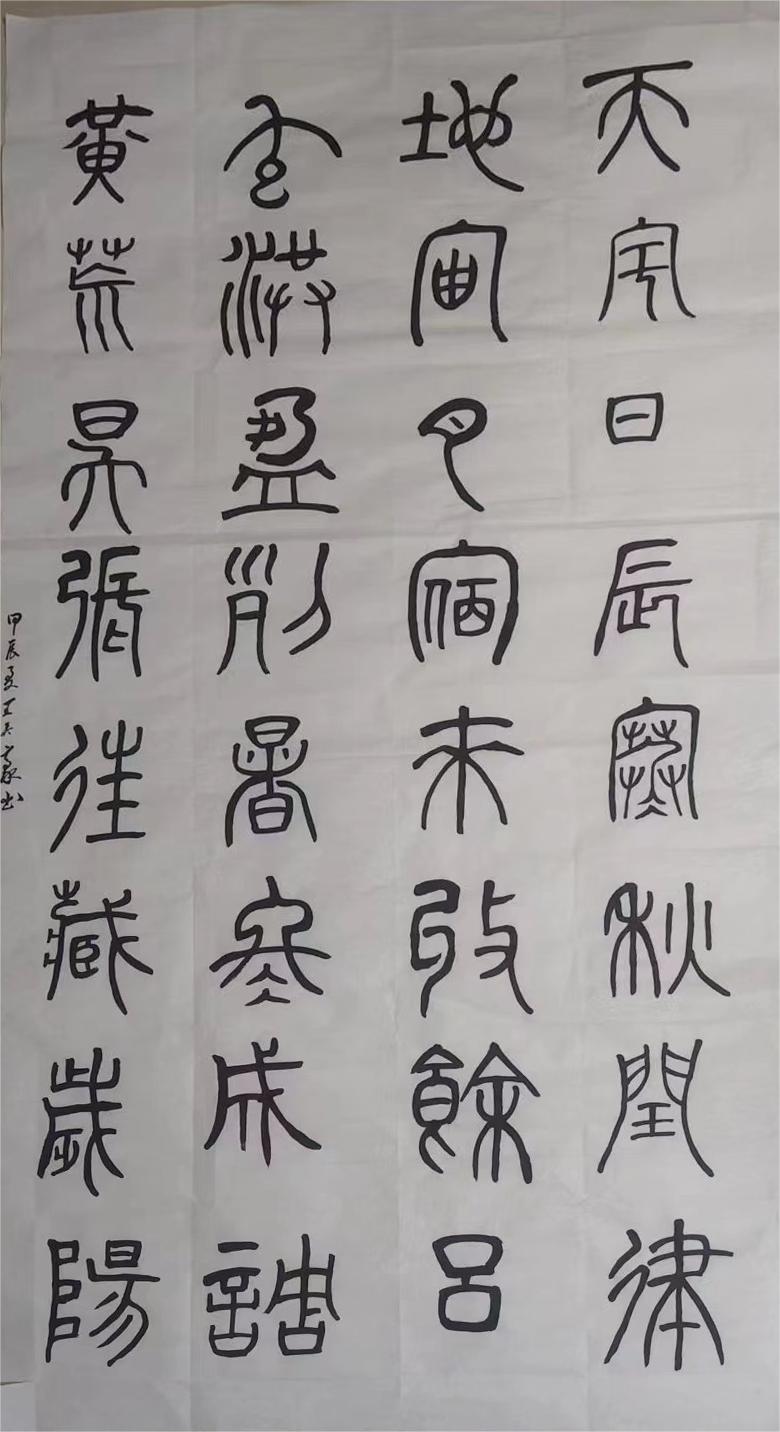 天地玄黃
宇宙洪荒
日月盈昃
辰宿列張
寒來暑往
秋收冬藏
閏餘成歲
律呂調陽
甲辰夏王